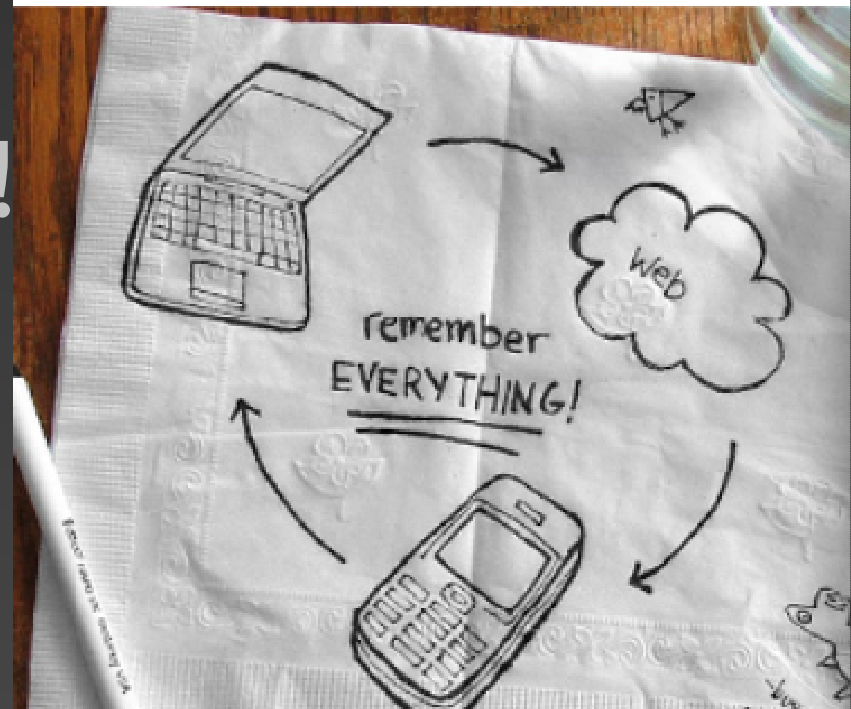 !
Web
remember
EVERYTHING!